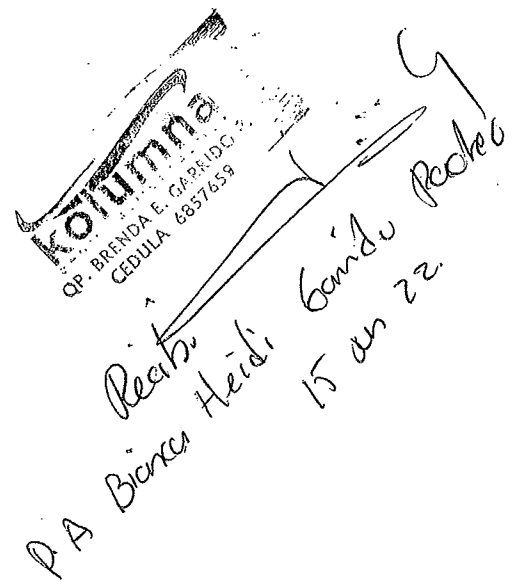 kolumna
QP. BRENDA E. GARRIDO
CEDULA 6857659
Recibi
P.A Bianca Heidi Garrido Pacheco
15 22.